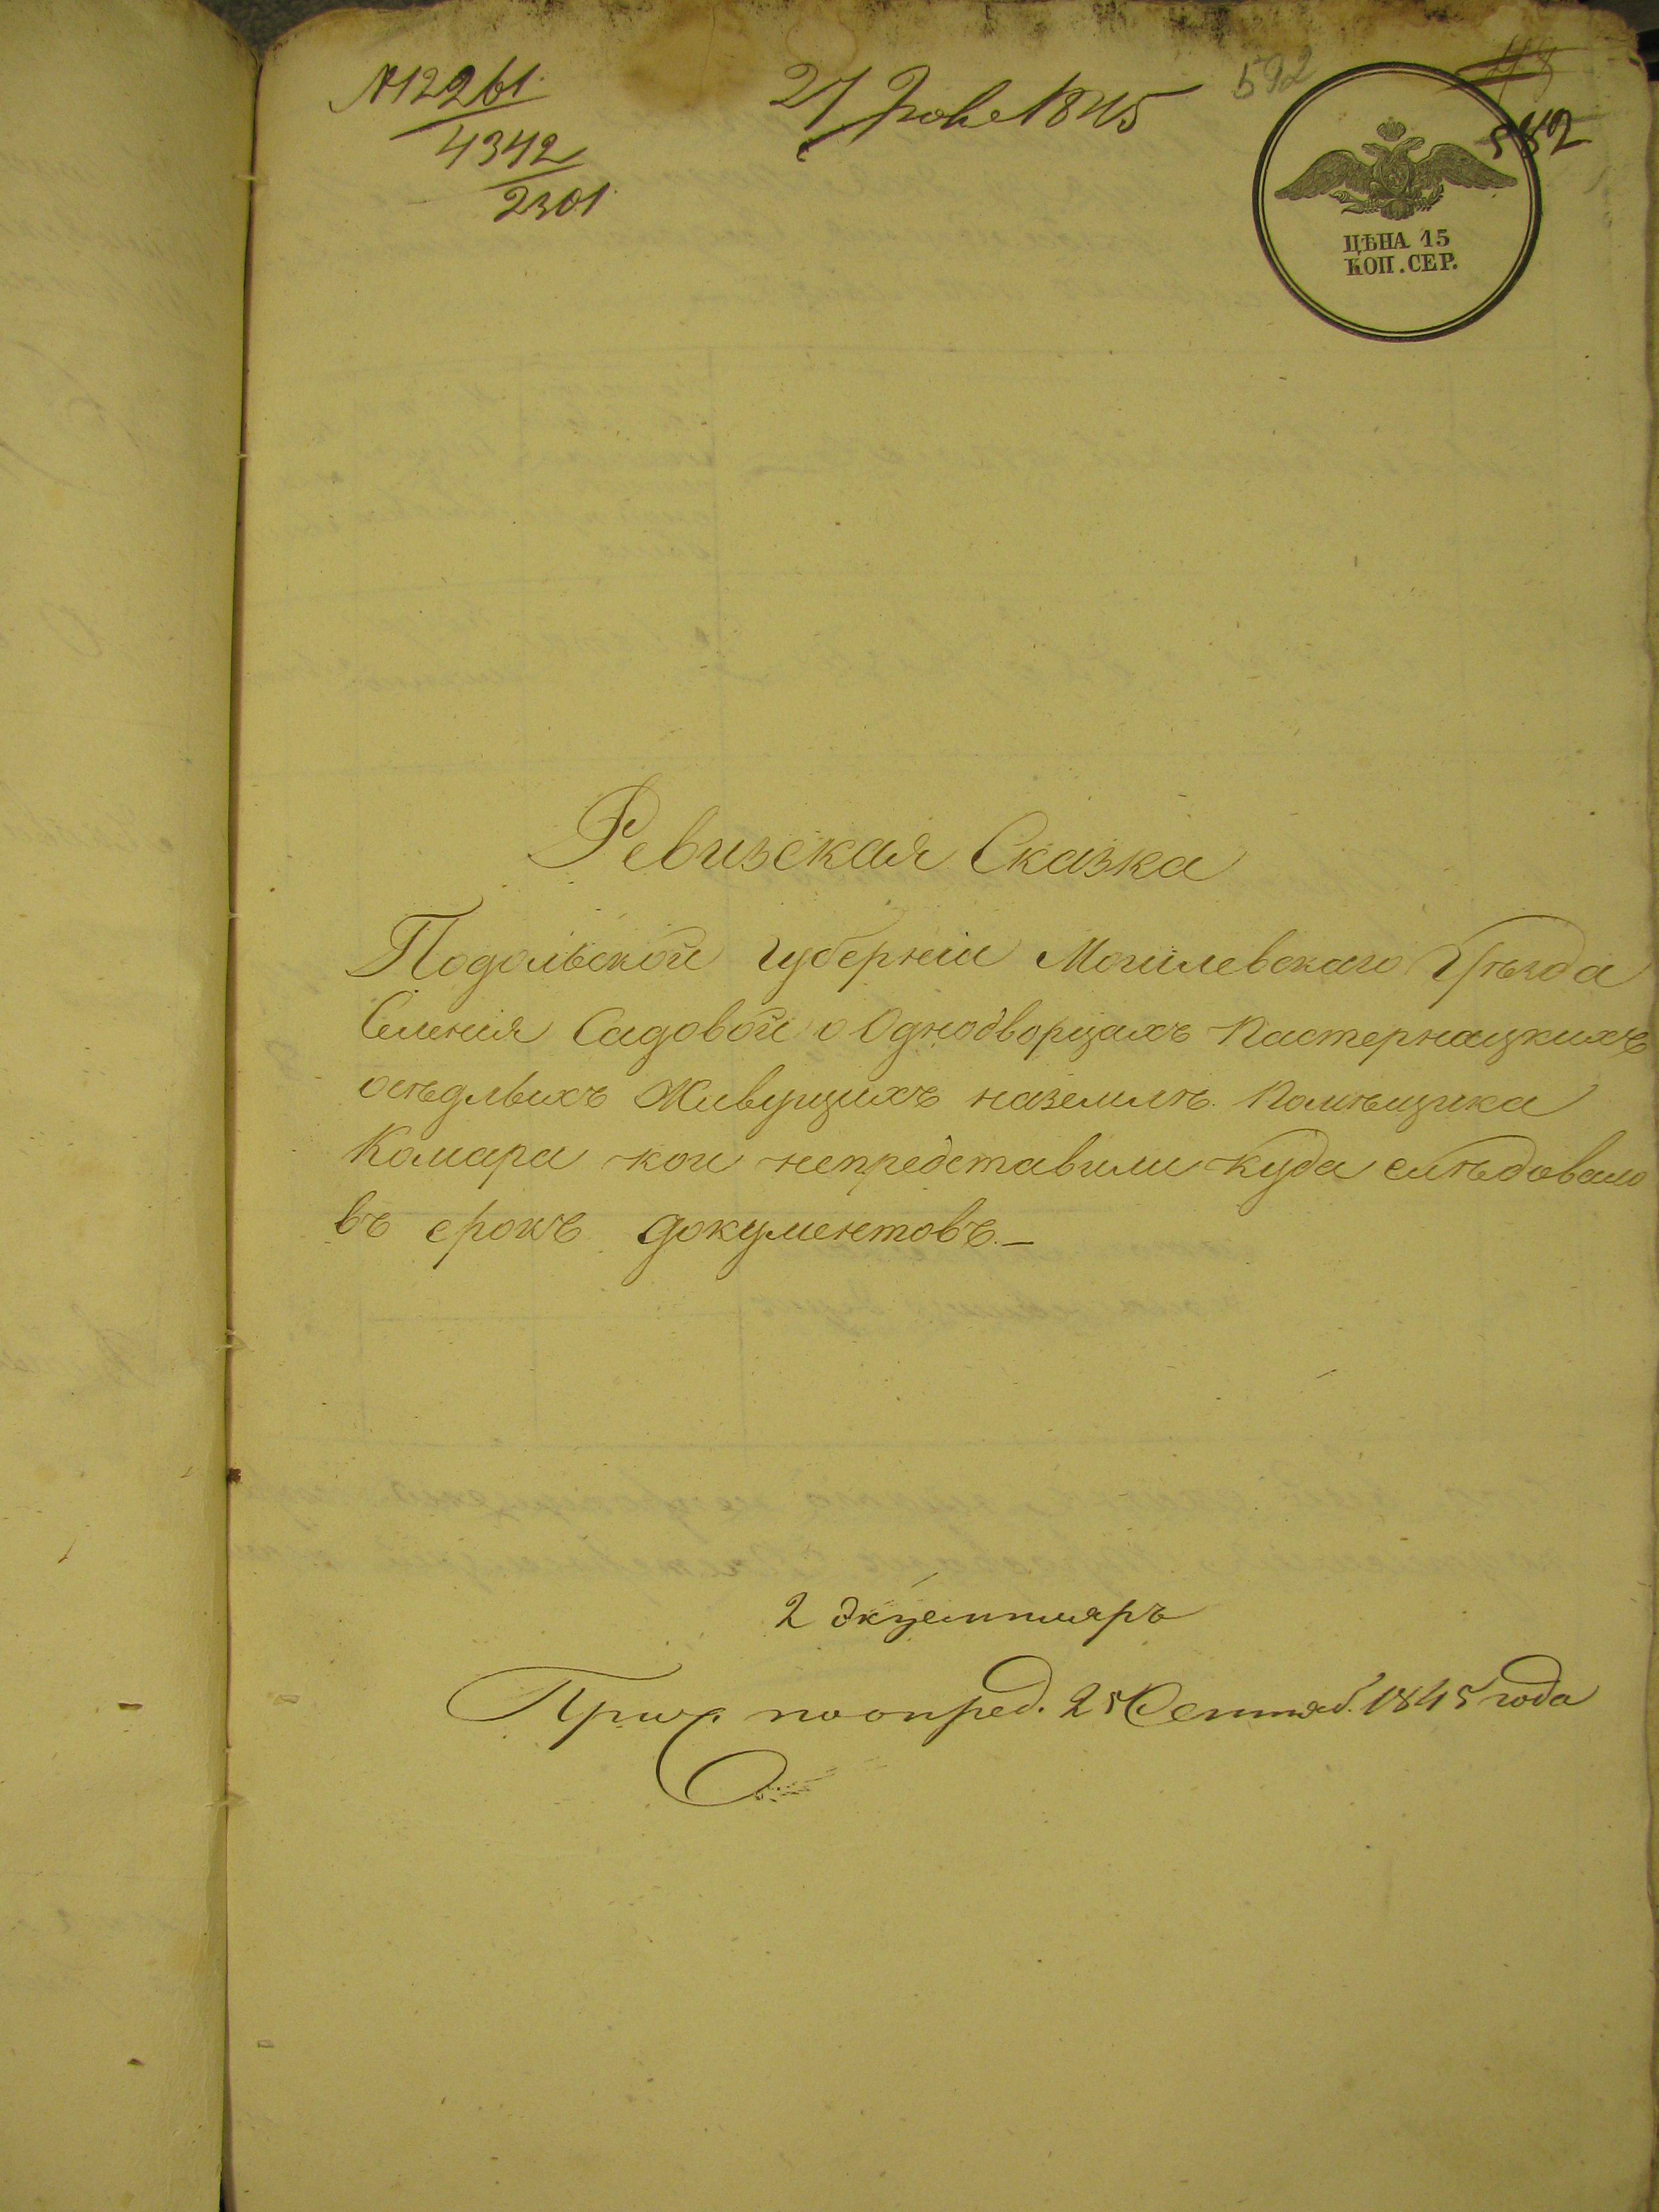 №12261
4342
2301
27 Июня 1845
592
582
ЦѢНА 15
КОП. СЕР.
Ревизская Сказка
Подольской Губерніи Могилевскаго Уѣзда
Селенія Садовой о Однодворцахъ Пастернацкихъ
осѣдлыхъ Живущихъ наземлѣ Помѣщика
Комара кои непредставили куда слѣдовало
въ срокъ документовъ.—
2 Экземпляръ
поопред. 25 Сентяб. 1845 года